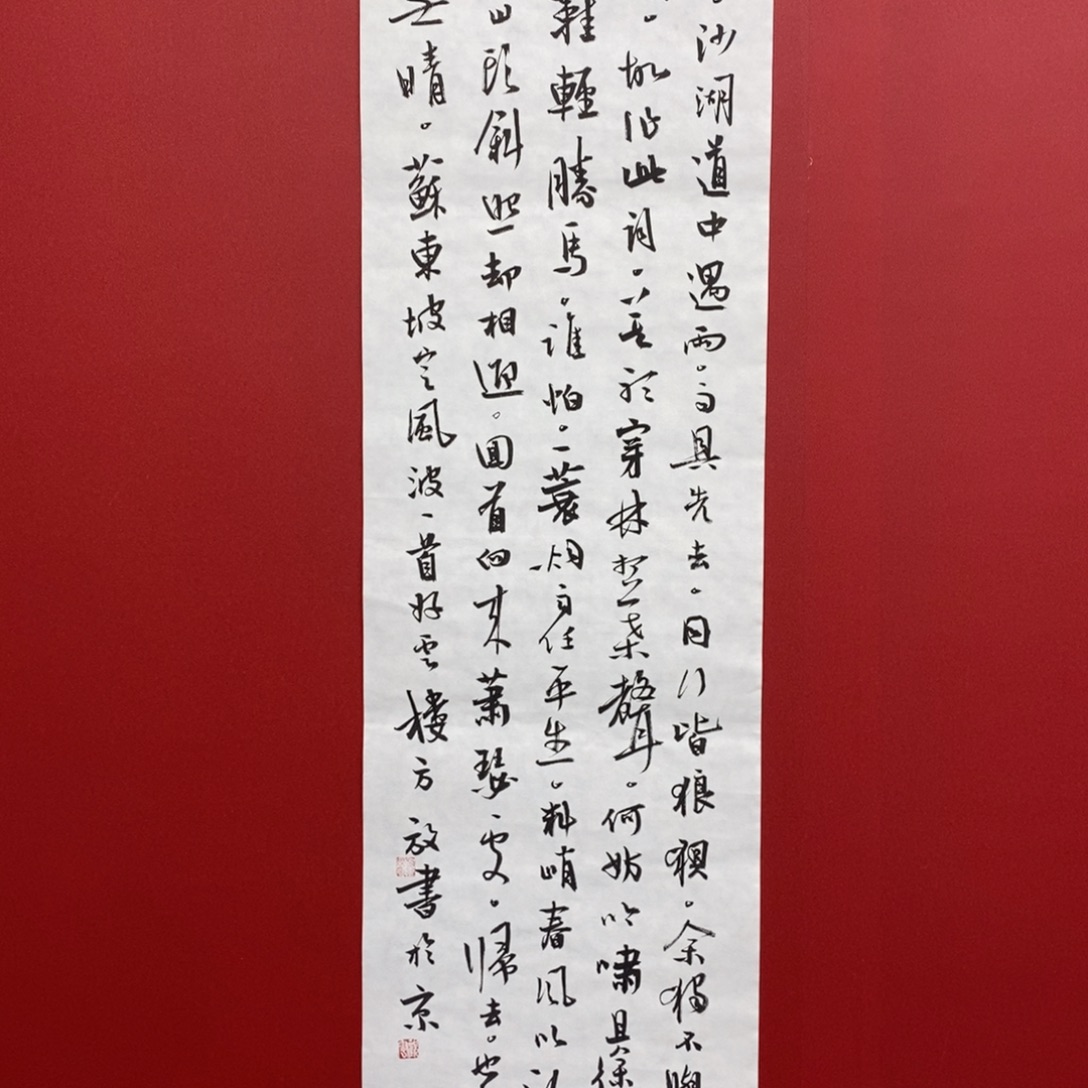 。沙湖道中遇雨。雨具先去。同行皆狼狽。余獨不覺
。故作此詞。莫聽穿林打葉聲。何妨吟嘯且徐
鞋輕勝馬。誰怕。一蓑烟雨任平生。料峭春風吹
山頭斜照却相迎。回首向來蕭瑟處。歸去。也
無晴。蘇東坡定風波一首好雲樓方放書於京